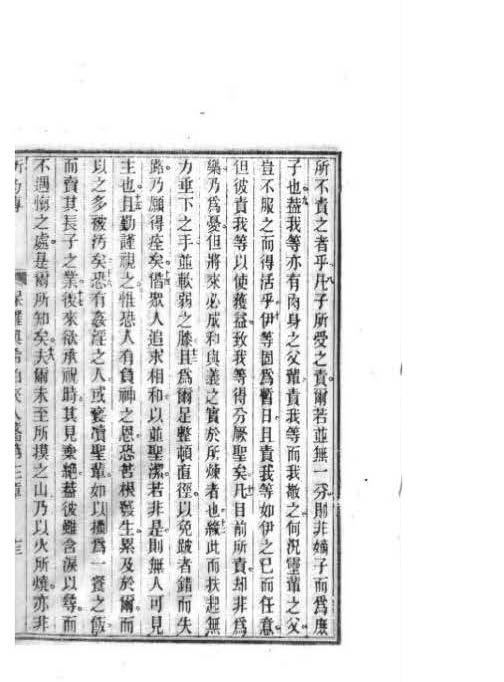 所不責之者乎凡子所受之責爾若並無一分則非嫡子而爲庶
子也葢我等亦有肉身之父輩責我等而我敬之何況靈輩之父
豈不服之而得活乎伊等固爲暫日且責我等如伊之已而任意
但彼責我等以使獲益致我等得分厥聖矣凡目前所責却非爲
樂乃爲憂但將來必成和與義之實於所煉者也緣此而扶起無
力垂下之手並軟弱之膝且爲爾足整頓直徑以免跛者錯而失
路乃願得痊矣偕眾人追求相和以並聖潔若非是則無人可見
主也且勤謹視之惟恐人有負神之恩恐苦根發生累及於爾而
以之多被汚矣恐有姦淫之人或褻瀆聖輩如以橘爲一餐之飯
而賣其長子之業後來欲承祝時其見棄絶葢彼雖含淚以尋而
不遇悔之處是爾所知矣夫爾未至所摸之山乃以火所燒亦非